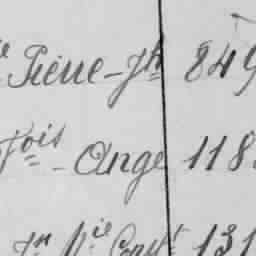 Pierre-Jh 849
fois - Ange 118
Jn Nie Const 131